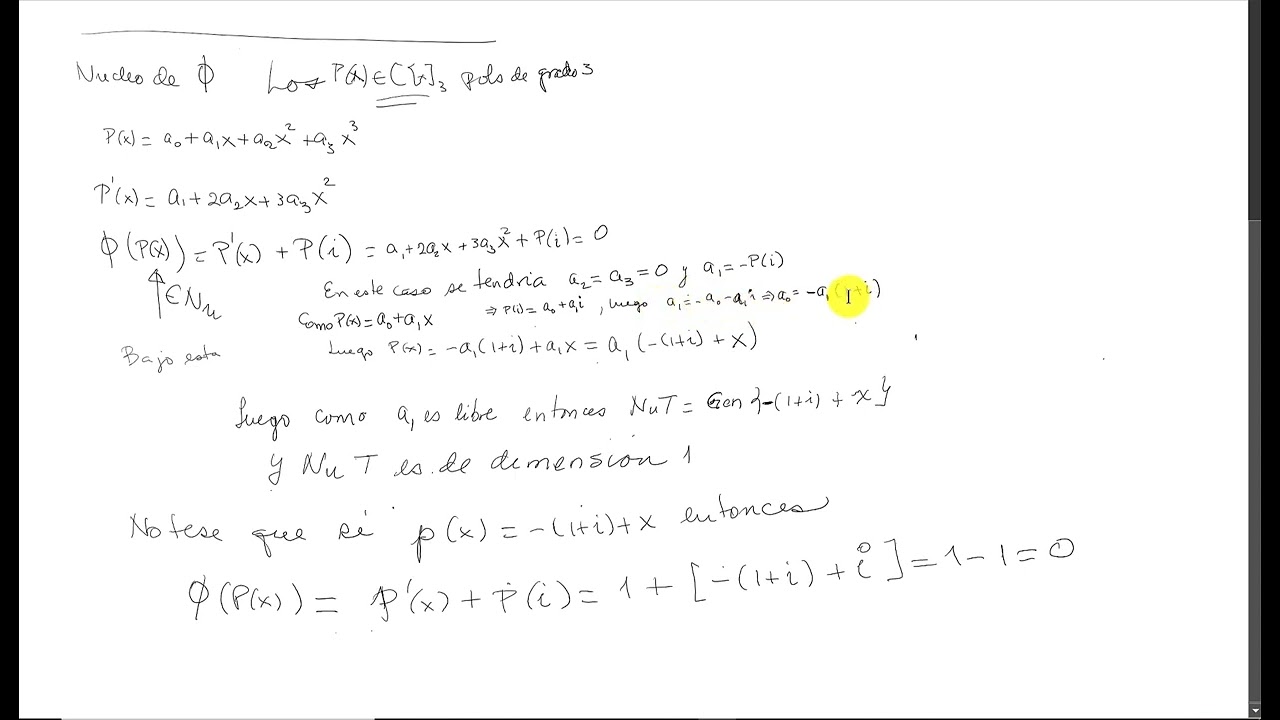 Nucleo de ϕ Los P(x)∈C[x]₃ pols de grado 3
P(x) = a₀+a₁x+a₂x²+a₃x³
P'(x) = a₁+2a₂x+3a₃x²
ϕ(P(x)) = P'(x) + P(i) = a₁+2a₂x+3a₃x²+P(i)=0
↑∈Nu
En este caso se tendria a₂=a₃=0 y a₁=-P(i)
Como P(x)=a₀+a₁x ⇒ P(i)=a₀+a₁i, luego a₁=-a₀-a₁i ⇒ a₀=-a₁(1+i)
Bajo esta Luego P(x)=-a₁(1+i)+a₁x = a₁(-(1+i)+x)
Luego como a₁ es libre entonces NuT = Gen{-(1+i)+x}
y Nu T es de dimensión 1
Notese que si p(x) = -(1+i)+x entonces
ϕ(P(x)) = p'(x)+P(i) = 1+[-(1+i)+i] = 1-1 = 0